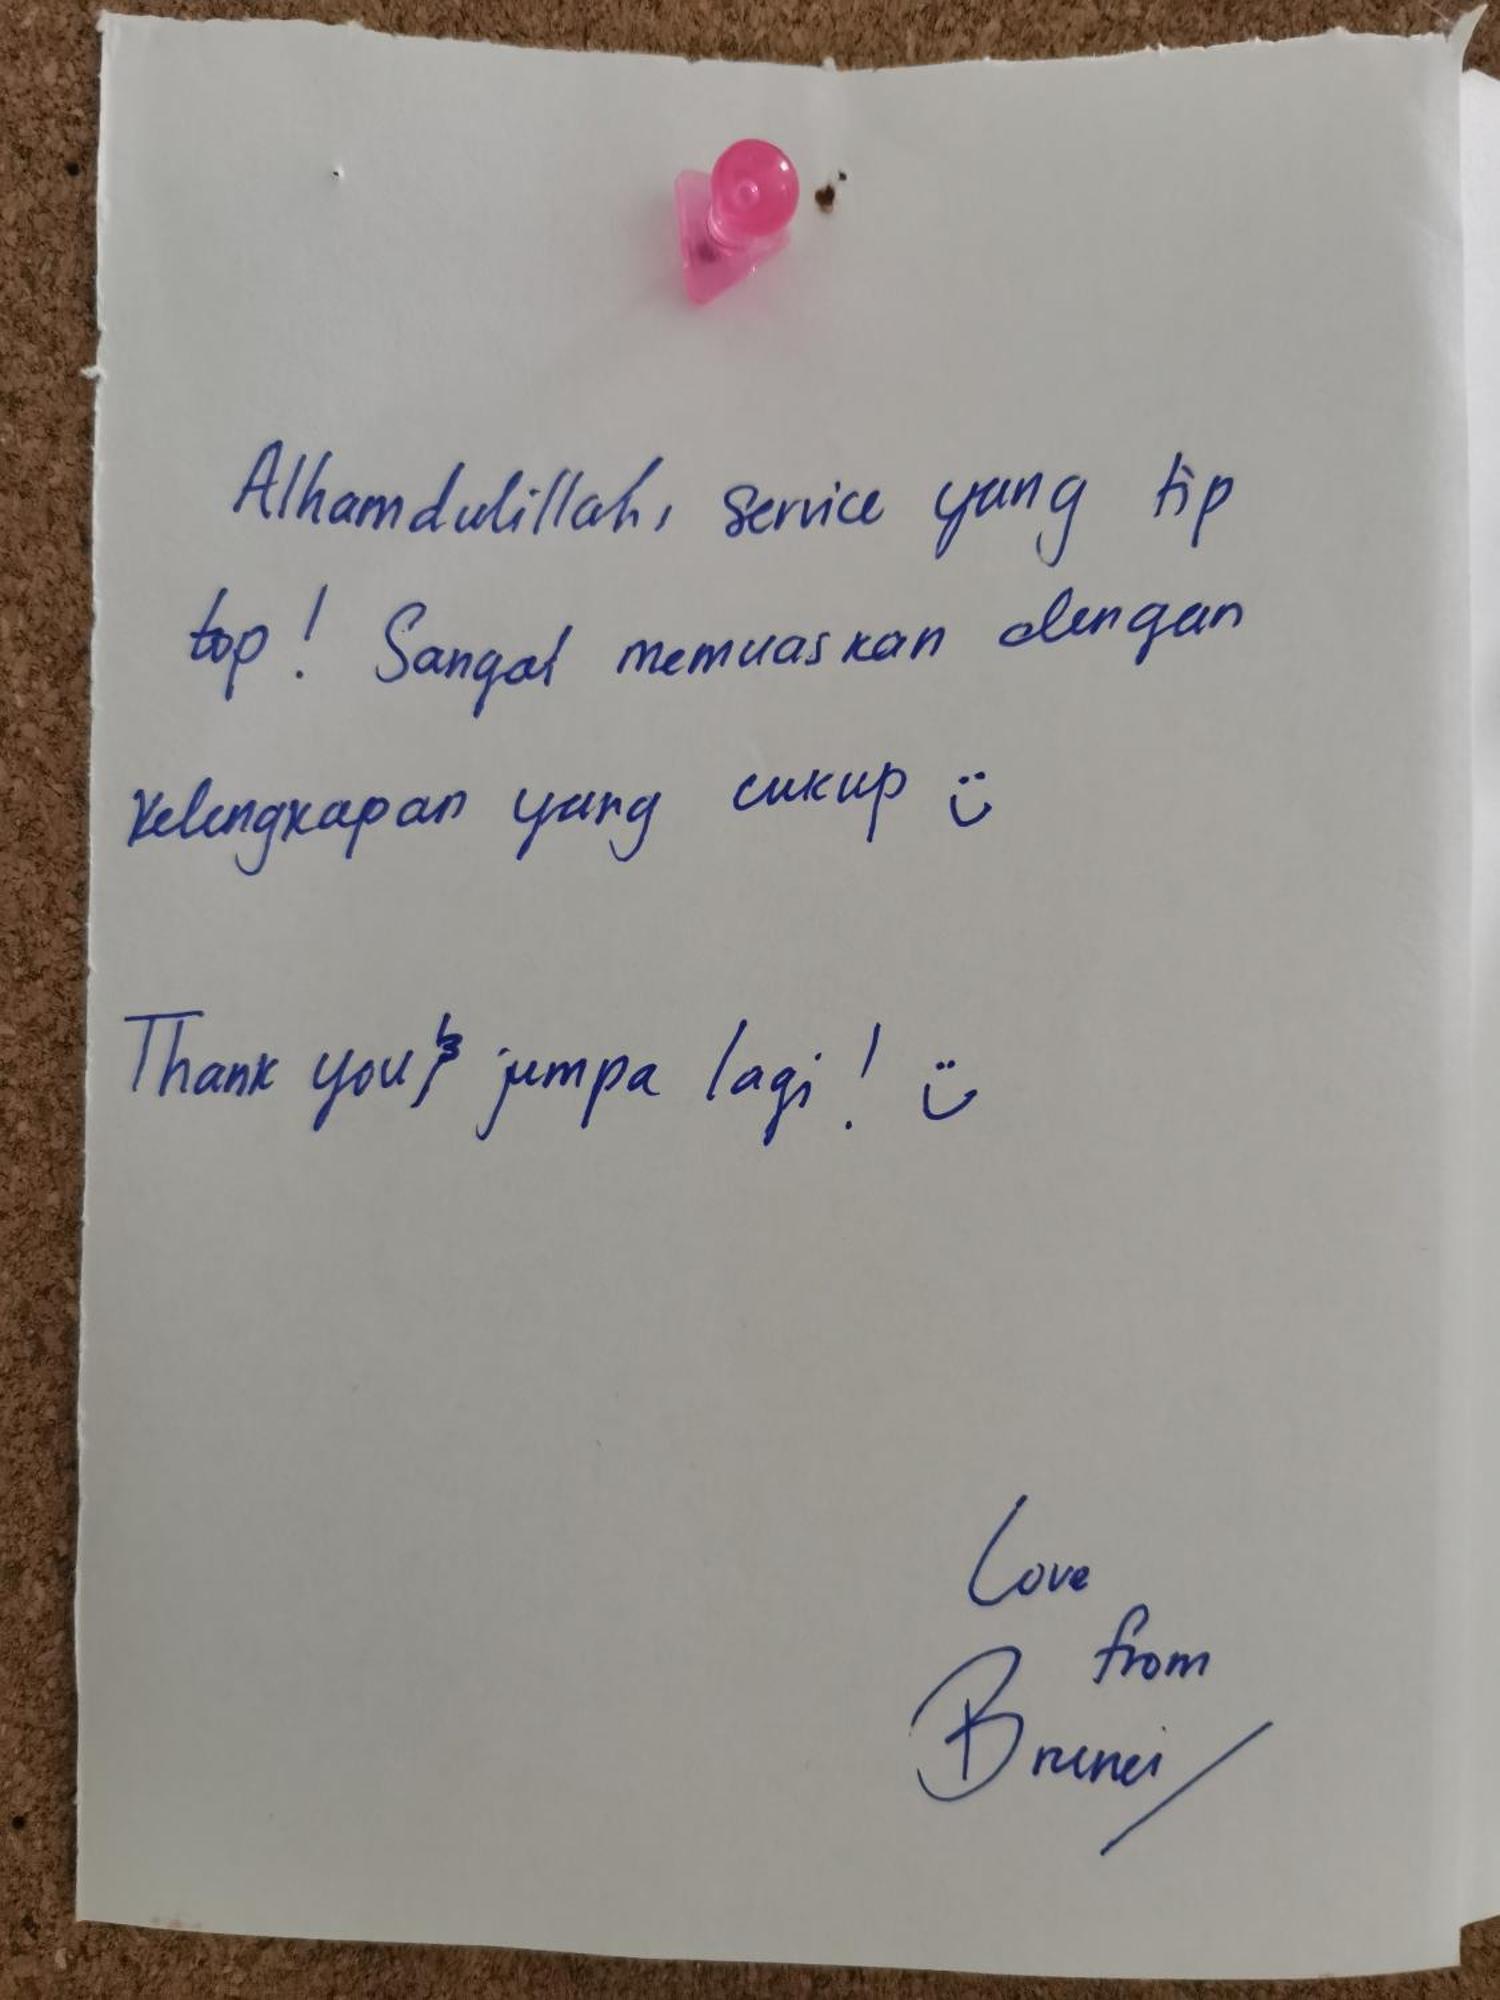 Alhamdulillah, service yang tip
top! Sangat memuaskan dengan
kelengkapan yang cukup :)
Thank you & jumpa lagi! :)
Love
from
Brunei